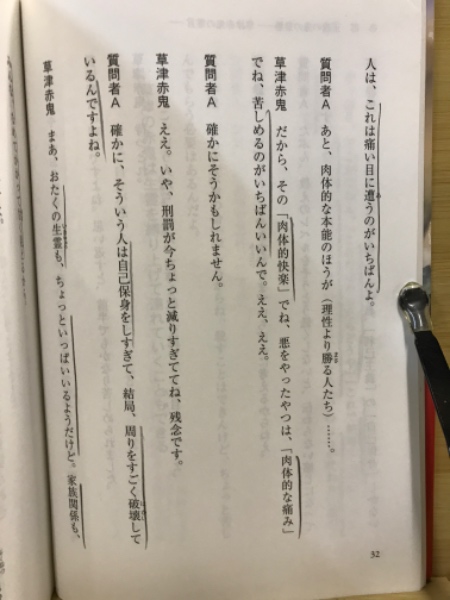 人は、これは痛い目に遭うのがいちばんよ。
質問者A　あと、肉体的な本能のほうが（理性より勝る人たち）……。
草津赤鬼　だから、その「肉体的快楽」でね、悪をやったやつは、「肉体的な痛み」
でね、苦しめるのがいちばんいいんで。ええ、ええ。
質問者A　確かにそうかもしれません。
草津赤鬼　ええ。いや、刑罰が今ちょっと減りすぎててね、残念です。
質問者A　確かに、そういう人は自己保身をしすぎて、結局、周りをすごく破壊して
いるんですよね。
草津赤鬼　まあ、おたくの生霊も、ちょっといっぱいいるようだけど。家族関係も、
52